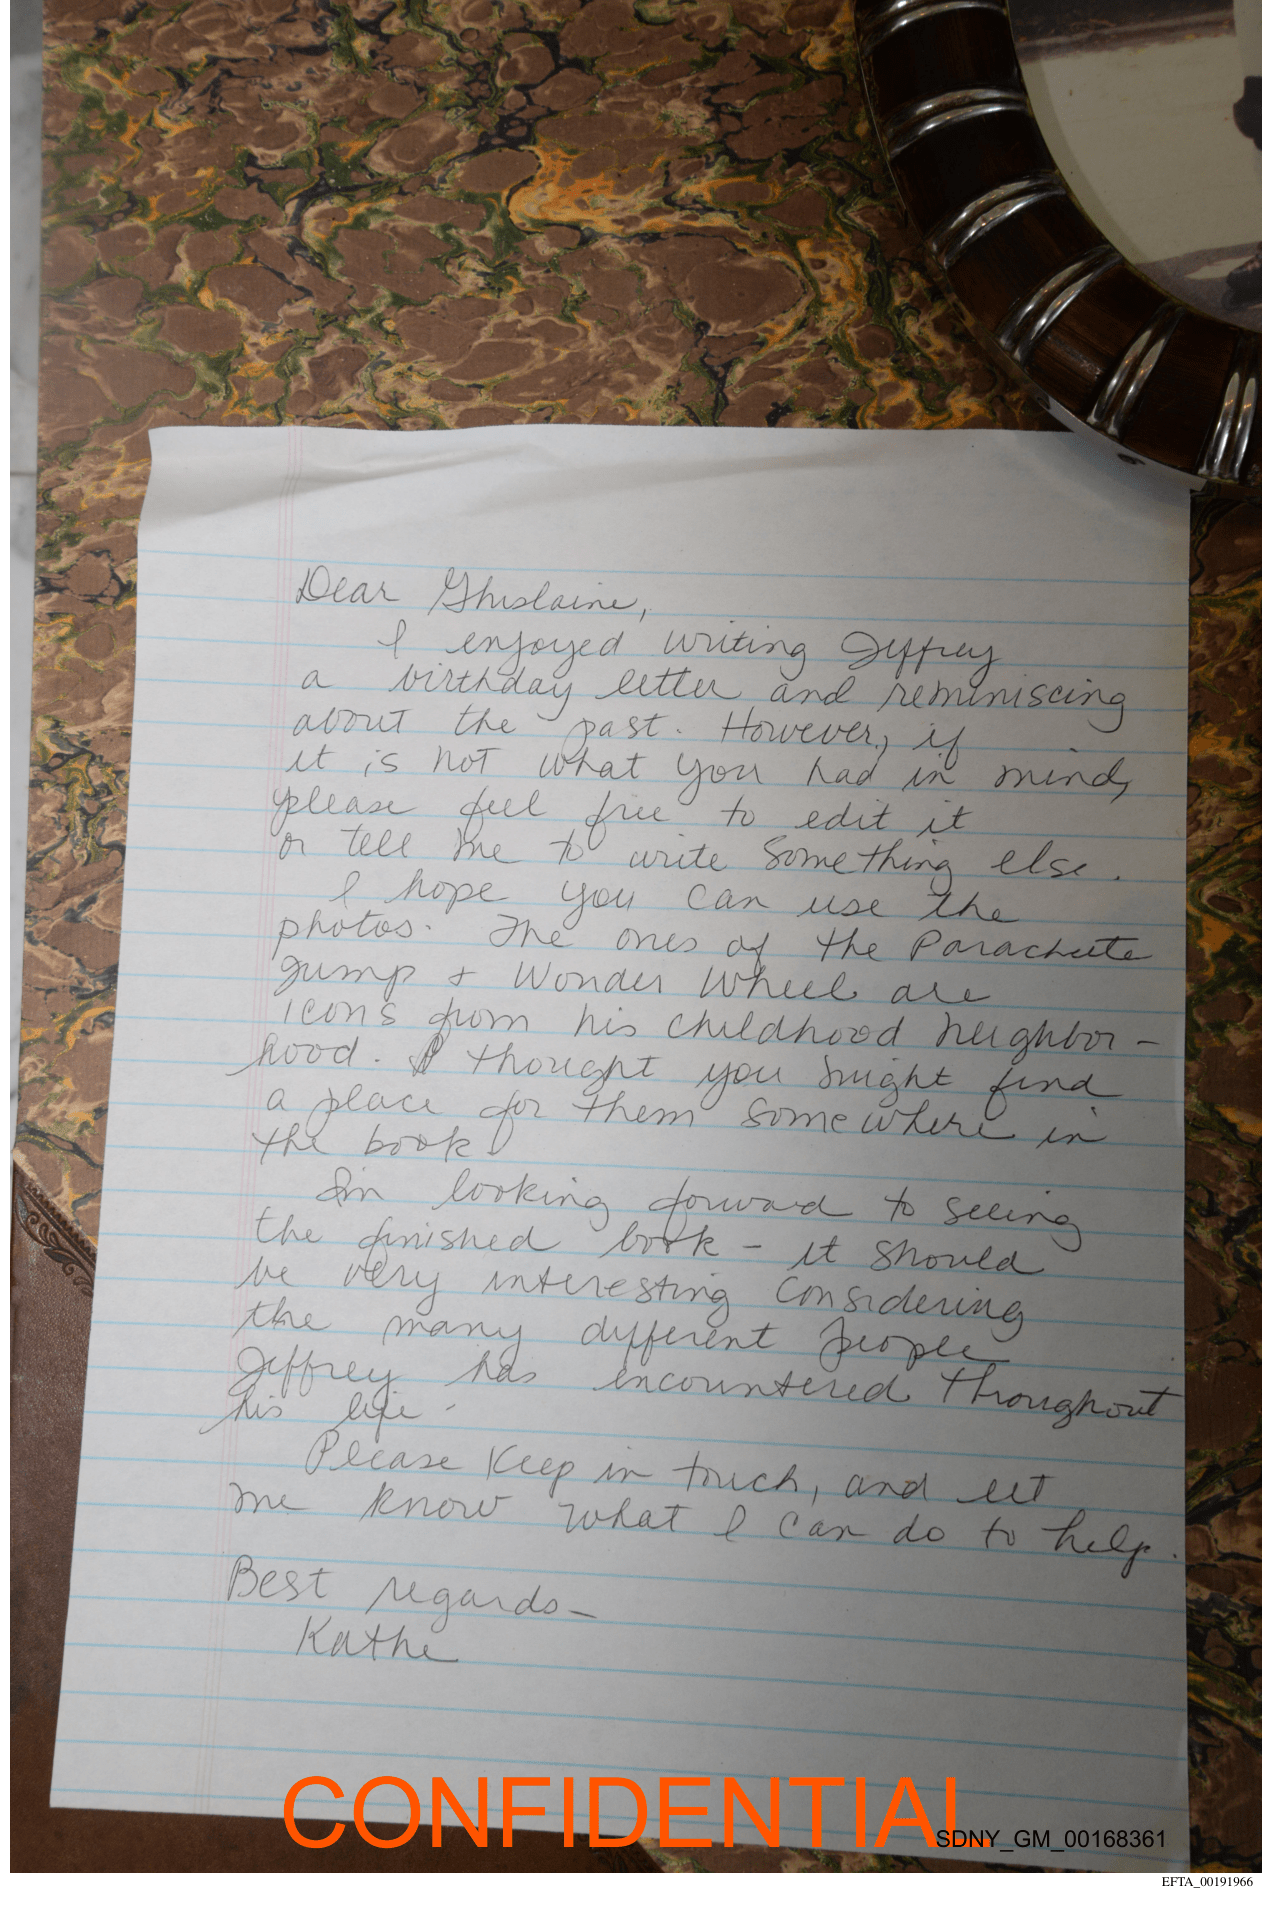 Dear Ghislaine,
I enjoyed writing Jeffrey
a birthday letter and reminiscing
about the past. However, if
it is not what you had in mind,
please feel free to edit it
or tell me to write something else.
I hope you can use the
photos. The ones of the Parachute
Jump + Wonder Wheel are
icons from his childhood neighbor-
hood. I thought you might find
a place for them somewhere in
the book.
I'm looking forward to seeing
the finished book - it should
be very interesting considering
the many different people
Jeffrey has encountered throughout
his life.
Please keep in touch, and let
me know what I can do to help.
Best regards-
Kathe
CONFIDENTIAL
SDNY_GM_00168361
EFTA_00191966